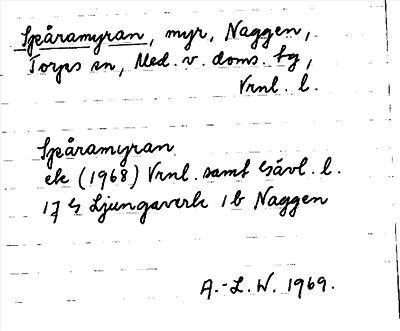 Spåramyran, myr, Naggen,
Torps sn, Med. v. doms. tg,
Vrnl. l.
Spåramyran
ek (1968) Vrnl. samt Gävl. l.
17 G Ljungaverk 1b Naggen
A.-L.W. 1969.